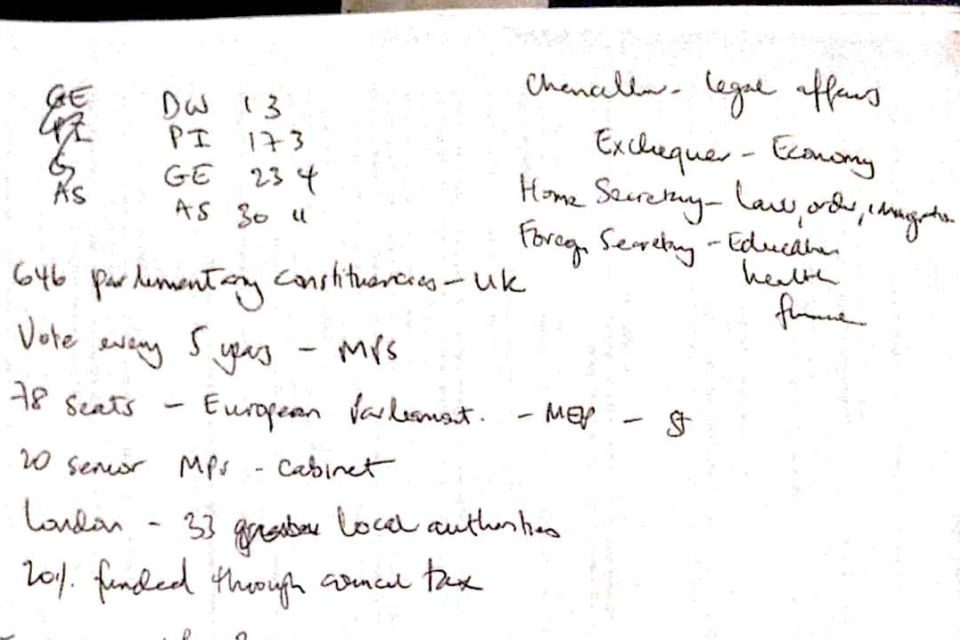 GE
PI
G
AS
DW 13
PI 173
GE 23 4
AS 30 "
Chancellor - legal affairs
Exchequer - Economy
Home Secretary - Law, order, immigration
Foreign Secretary - Education
health
finance
646 parlimentary constituencies - UK
Vote every 5 years - MPs
78 seats - European Parliament. - MEP -
20 senior MPs - cabinet
London - 33 local authorities
20% funded through council tax